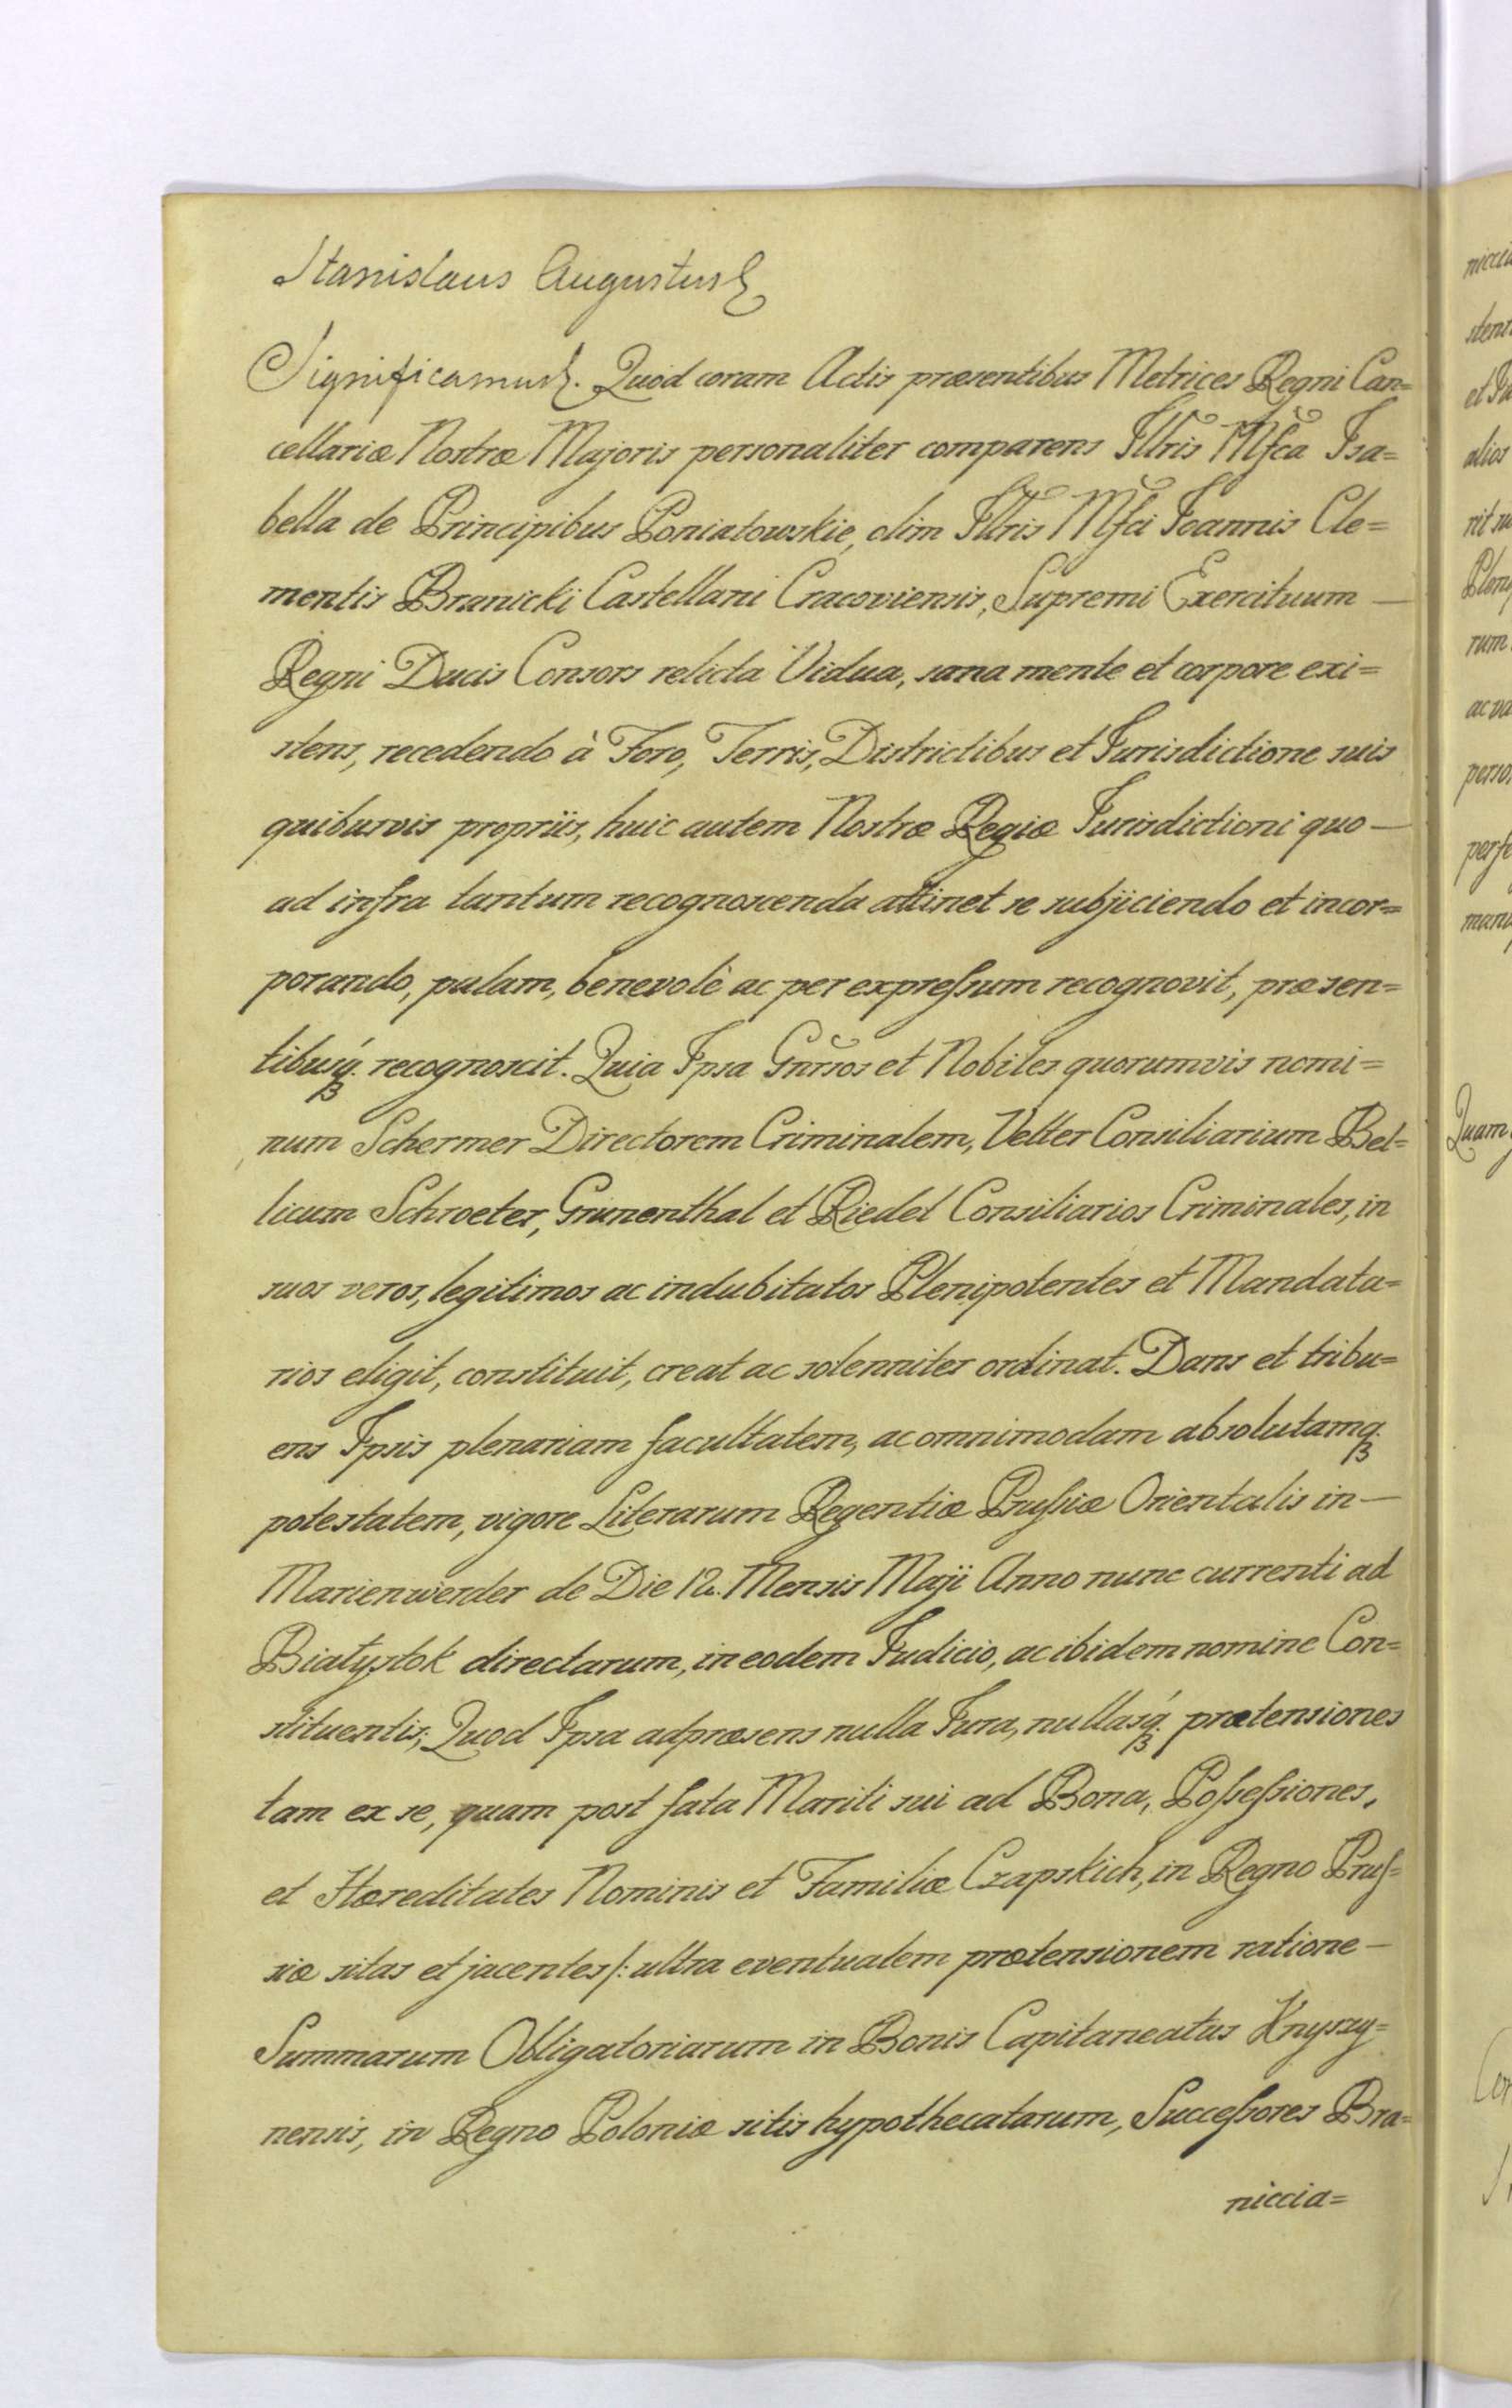 Stanislaus Augustus &
Significamus &. Quod coram Actis præsentibus Metrices Regni Can=
cellariæ Nostræ Majoris personaliter comparens Illris Mfca Isa=
bella de Principibus Poniatowskie, olim Illris Mfci Joannis Cle=
mentis Branicki Castellani Cracoviensis, Supremi Exercituum —
Regni Ducis Consors relicta Vidua, sana mente et corpore exi=
stens, recedendo à Foro, Terris, Districtibus et Jurisdictione suis
quibusvis propriis, huic autem Nostræ Regiæ Jurisdictioni quo —
ad infra tantum recognoscenda attinet se subjiciendo et incor=
porando, palam, benevolè ac per expreſsum recognovit, præsen=
tibusq. recognoscit. Quia Ipsa Gnrsos et Nobiles quorumvis nomi=
num Schermer Directorem Criminalem, Vetter Consiliarium Bel=
licum Schroeter, Grunenthal et Riedel Consiliarios Criminales, in
suos veros, legitimos ac indubitatos Plenipotentes et Mandata=
rios eligit, constituit, creat ac solenniter ordinat. Dans et tribu=
ens Ipsis plenariam facultatem, ac omnimodam absolutamq.
potestatem, vigore Literarum Regentiæ Pruſsiæ Orientalis in —
Marienwerder de Die 12. Mensis Maji Anno nunc currenti ad
Białystok directarum, in eodem Judicio, ac ibidem nomine Con=
stituentis; Quod Ipsa adpræsens nulla Jura, nullasq. prætensiones
tam ex se, quam post fata Mariti sui ad Bona, Poſseſsiones,
et Hæreditates Nominis et Familiæ Czapskich, in Regno Pruſ=
siæ sitas et jacentes /: ultra eventualem prætensionem ratione —
Summarum Obligatoriarum in Bonis Capitaneatus Knyszy=
nensis, in Regno Poloniæ sitis hypothecatarum, Succeſsores Bra=
niccia=